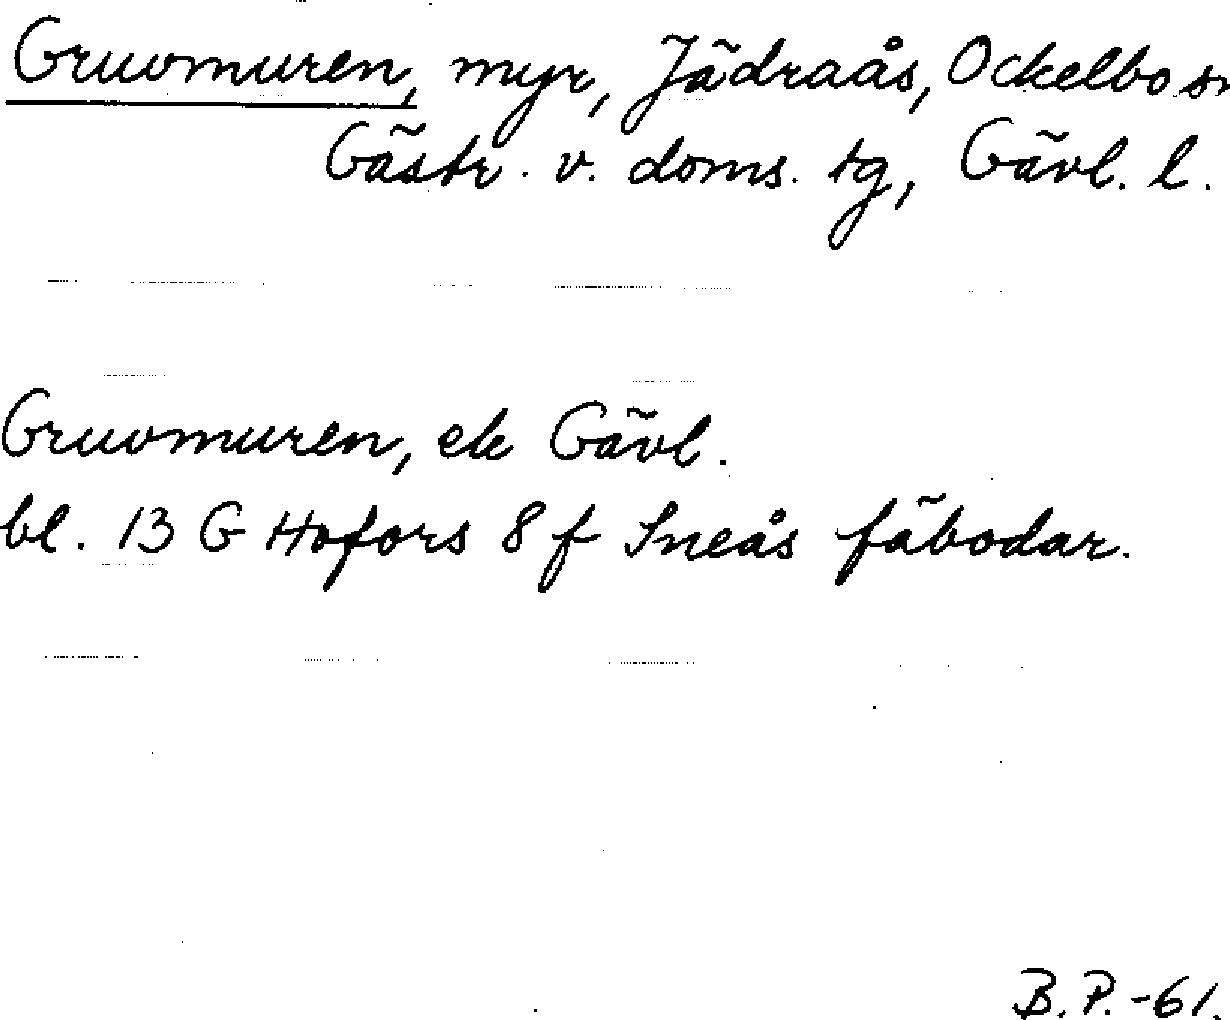 Gruvmuren, myr, Jädraås, Ockelbo sn
Gästr. v. doms. tg, Gävl. l.
Gruvmuren, ek Gävl.
bl. 13 G Hofors 8 f Ineås fäbodar.
B. P. -61.